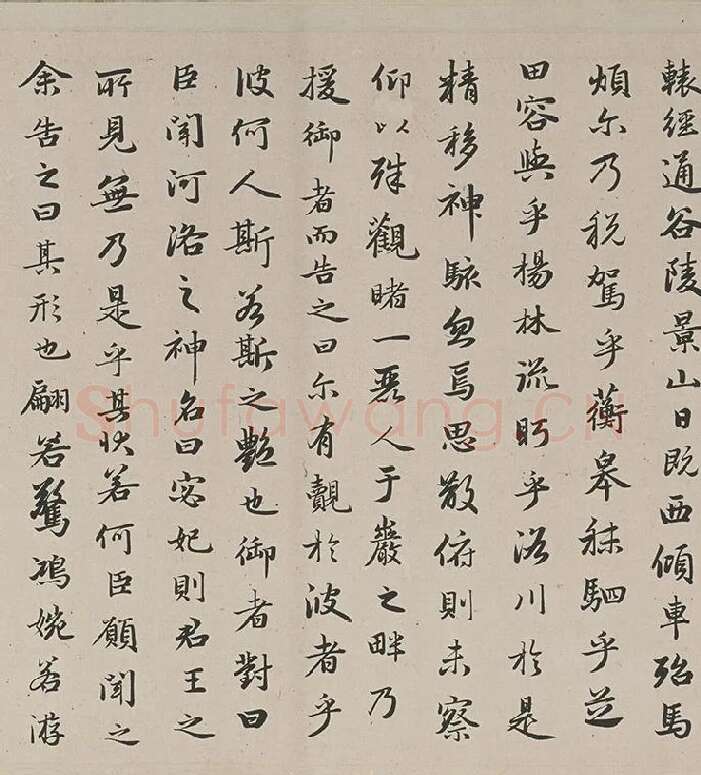 轅經通谷陵景山日既西傾車殆馬
煩尓乃税駕乎蘅皋秣駟乎芝
田容與乎楊林流眄乎洛川於是
精移神駭忽焉思散俯則未察
仰以殊觀睹一麗人于巖之畔乃
援御者而告之曰尓有覿於彼者乎
彼何人斯若斯之艶也御者對曰
臣聞河洛之神名曰宓妃則君王之
所見無乃是乎其狀若何臣願聞之
余告之曰其形也翩若驚鴻婉若游
Shufawang.CN